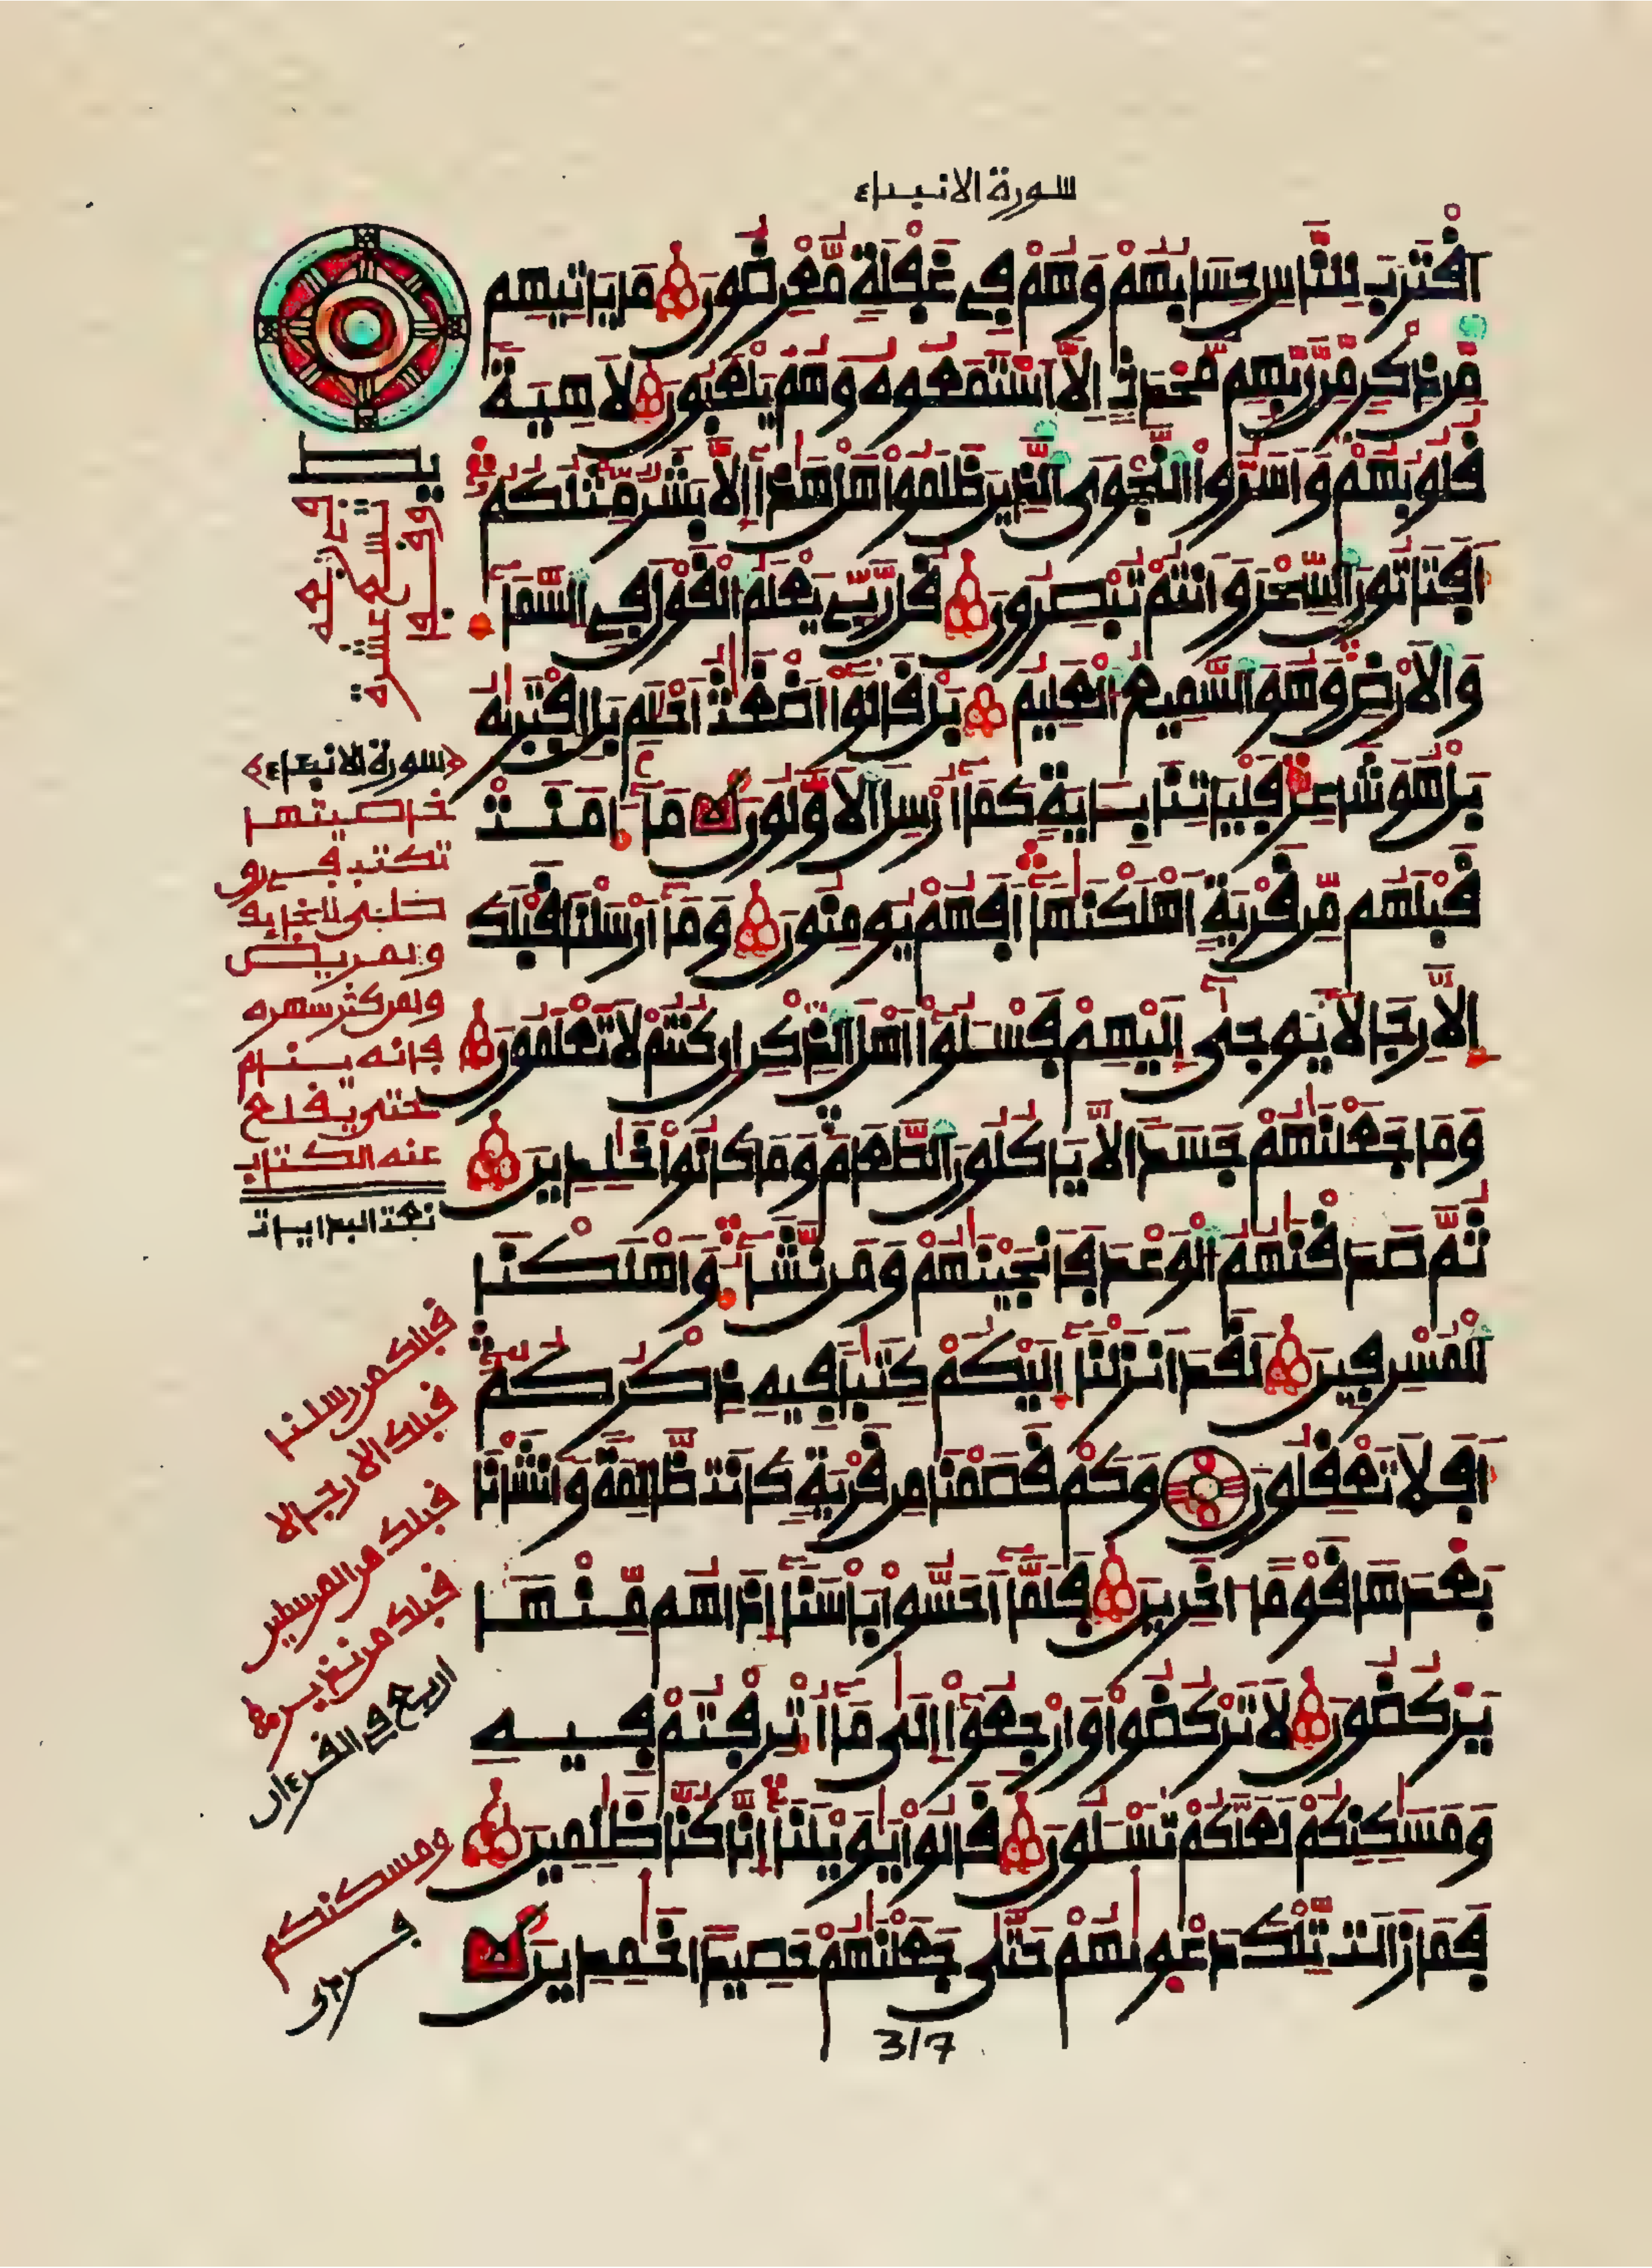 سورة الانبياء
اقْتَرَبَ لِلنَّاسِ حِسَابُهُمْ وَهُمْ فِي غَفْلَةٍ مُّعْرِضُونَ مَا يَاتِيهِم
مِّن ذِكْرٍ مِّن رَّبِّهِم مُّحْدَثٍ اِلَّا اَسْتَمَعُوهُ وَهُمْ يَلْعَبُونَ لَاهِيَةً
قُلُوبُهُمْ وَأَسَرُّوا النَّجْوَى الَّذِينَ ظَلَمُوا هَلْ هَذَا إِلَّا بَشَرٌ مِّثْلُكُمُ
أَفَتَاتُونَ السِّحْرَ وَأَنتُمْ تُبْصِرُونَ قُل رَّبِّي يَعْلَمُ الْقَوْلَ فِي السَّمَاءِ
وَالْأَرْضِ وَهُوَ السَّمِيعُ الْعَلِيمُ بَلْ قَالُوا أَضْغَثُ أَحْلَمٍ بَلِ افْتَرَيهُ
بَلْ هُوَ شَاعِرٌ فَلْيَاتِنَا بِـَايَةٍ كَمَا أُرْسِلَ الْأَوَّلُونَ مَا ءَامَنَتْ
قَبْلَهُم مِّن قَرْيَةٍ أَهْلَكْنَهَا أَفَهُمْ يُومِنُونَ وَمَا أَرْسَلْنَا قَبْلَكَ
إِلَّا رِجَالًا يُوحَى إِلَيْهِمْ فَسْـَلُوا أَهْلَ الذِّكْرِ إِن كُنتُمْ لَا تَعْلَمُونَ
وَمَا جَعَلْنَهُمْ جَسَدًا لَّا يَاكُلُونَ الطَّعَامَ وَمَا كَانُوا خَلِدِينَ
ثُمَّ صَدَقْنَهُمُ الْوَعْدَ فَأَنجَيْنَهُمْ وَمَن نَّشَاءُ وَأَهْلَكْنَا
الْمُسْرِفِينَ لَقَدْ أَنزَلْنَا إِلَيْكُمْ كِتَبًا فِيهِ ذِكْرُكُمُ
أَفَلَا تَعْقِلُونَ وَكَمْ قَصَمْنَا مِن قَرْيَةٍ كَانَت ظَّالِمَةً وَأَنشَأْنَا
بَعْدَهَا قَوْمًا ـاخَرِينَ فَلَمَّا أَحَسُّوا بَاسَنَا إِذَا هُم مِّنْهَا
يَرْكُضُونَ لَا تَرْكُضُوا وَارْجِعُوا إِلَى مَا أُتْرِفْتُمْ فِيهِ
وَمَسَكِنِكُمْ لَعَلَّكُمْ تُسْـَلُونَ قَالُوا يَوَيْلَنَا إِنَّا كُنَّا ظَلِمِينَ
فَمَا زَالَت تِّلْكَ دَعْوَيهُمْ حَتَّى جَعَلْنَهُمْ حَصِيدًا خَمِدِينَ
317
يط
وقفها
تسع عشرة
سورة الانبياء
خاصيتها
تكتب في رو
ولمريض
ولمن كثر سهره
فانه ينام
حتى يقلع
عنه الكتاب
قبلك من رسلنا
قبلك الا رجالا
قبلك من المرسلين
قبلك من نذير
اربع في القرءان
ومسكنكم